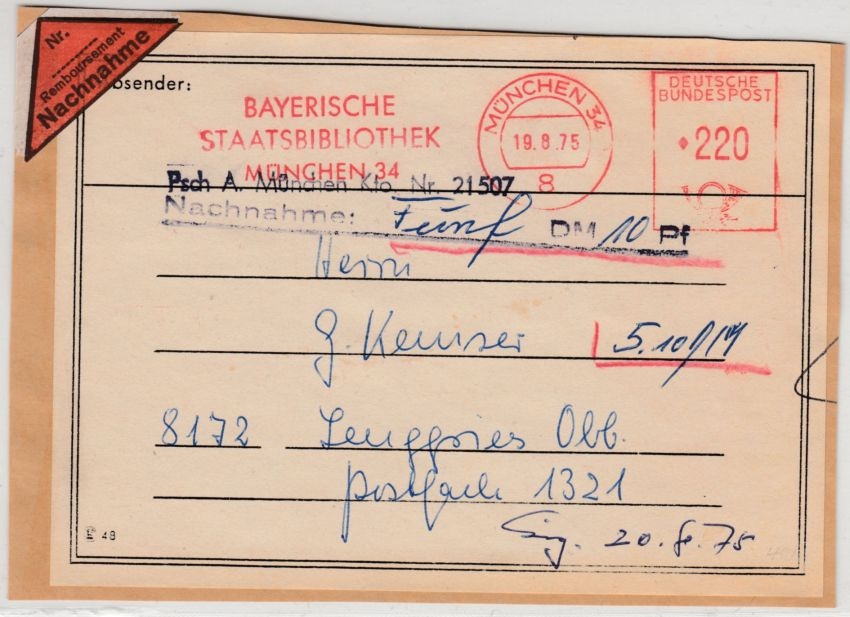 Nr.
Remboursement
Nachnahme
bsender:
BAYERISCHE
STAATSBIBLIOTHEK
MÜNCHEN 34
MÜNCHEN 34
19.8.75
8
DEUTSCHE
BUNDESPOST
220
Psch A. München Kto. Nr. 21507
Nachnahme: Fünf DM 10 Pf
Herrn
G. Kemser
5.10
8172 Lenggries Obb.
Postfach 1321
Eing. 20.8.75
48